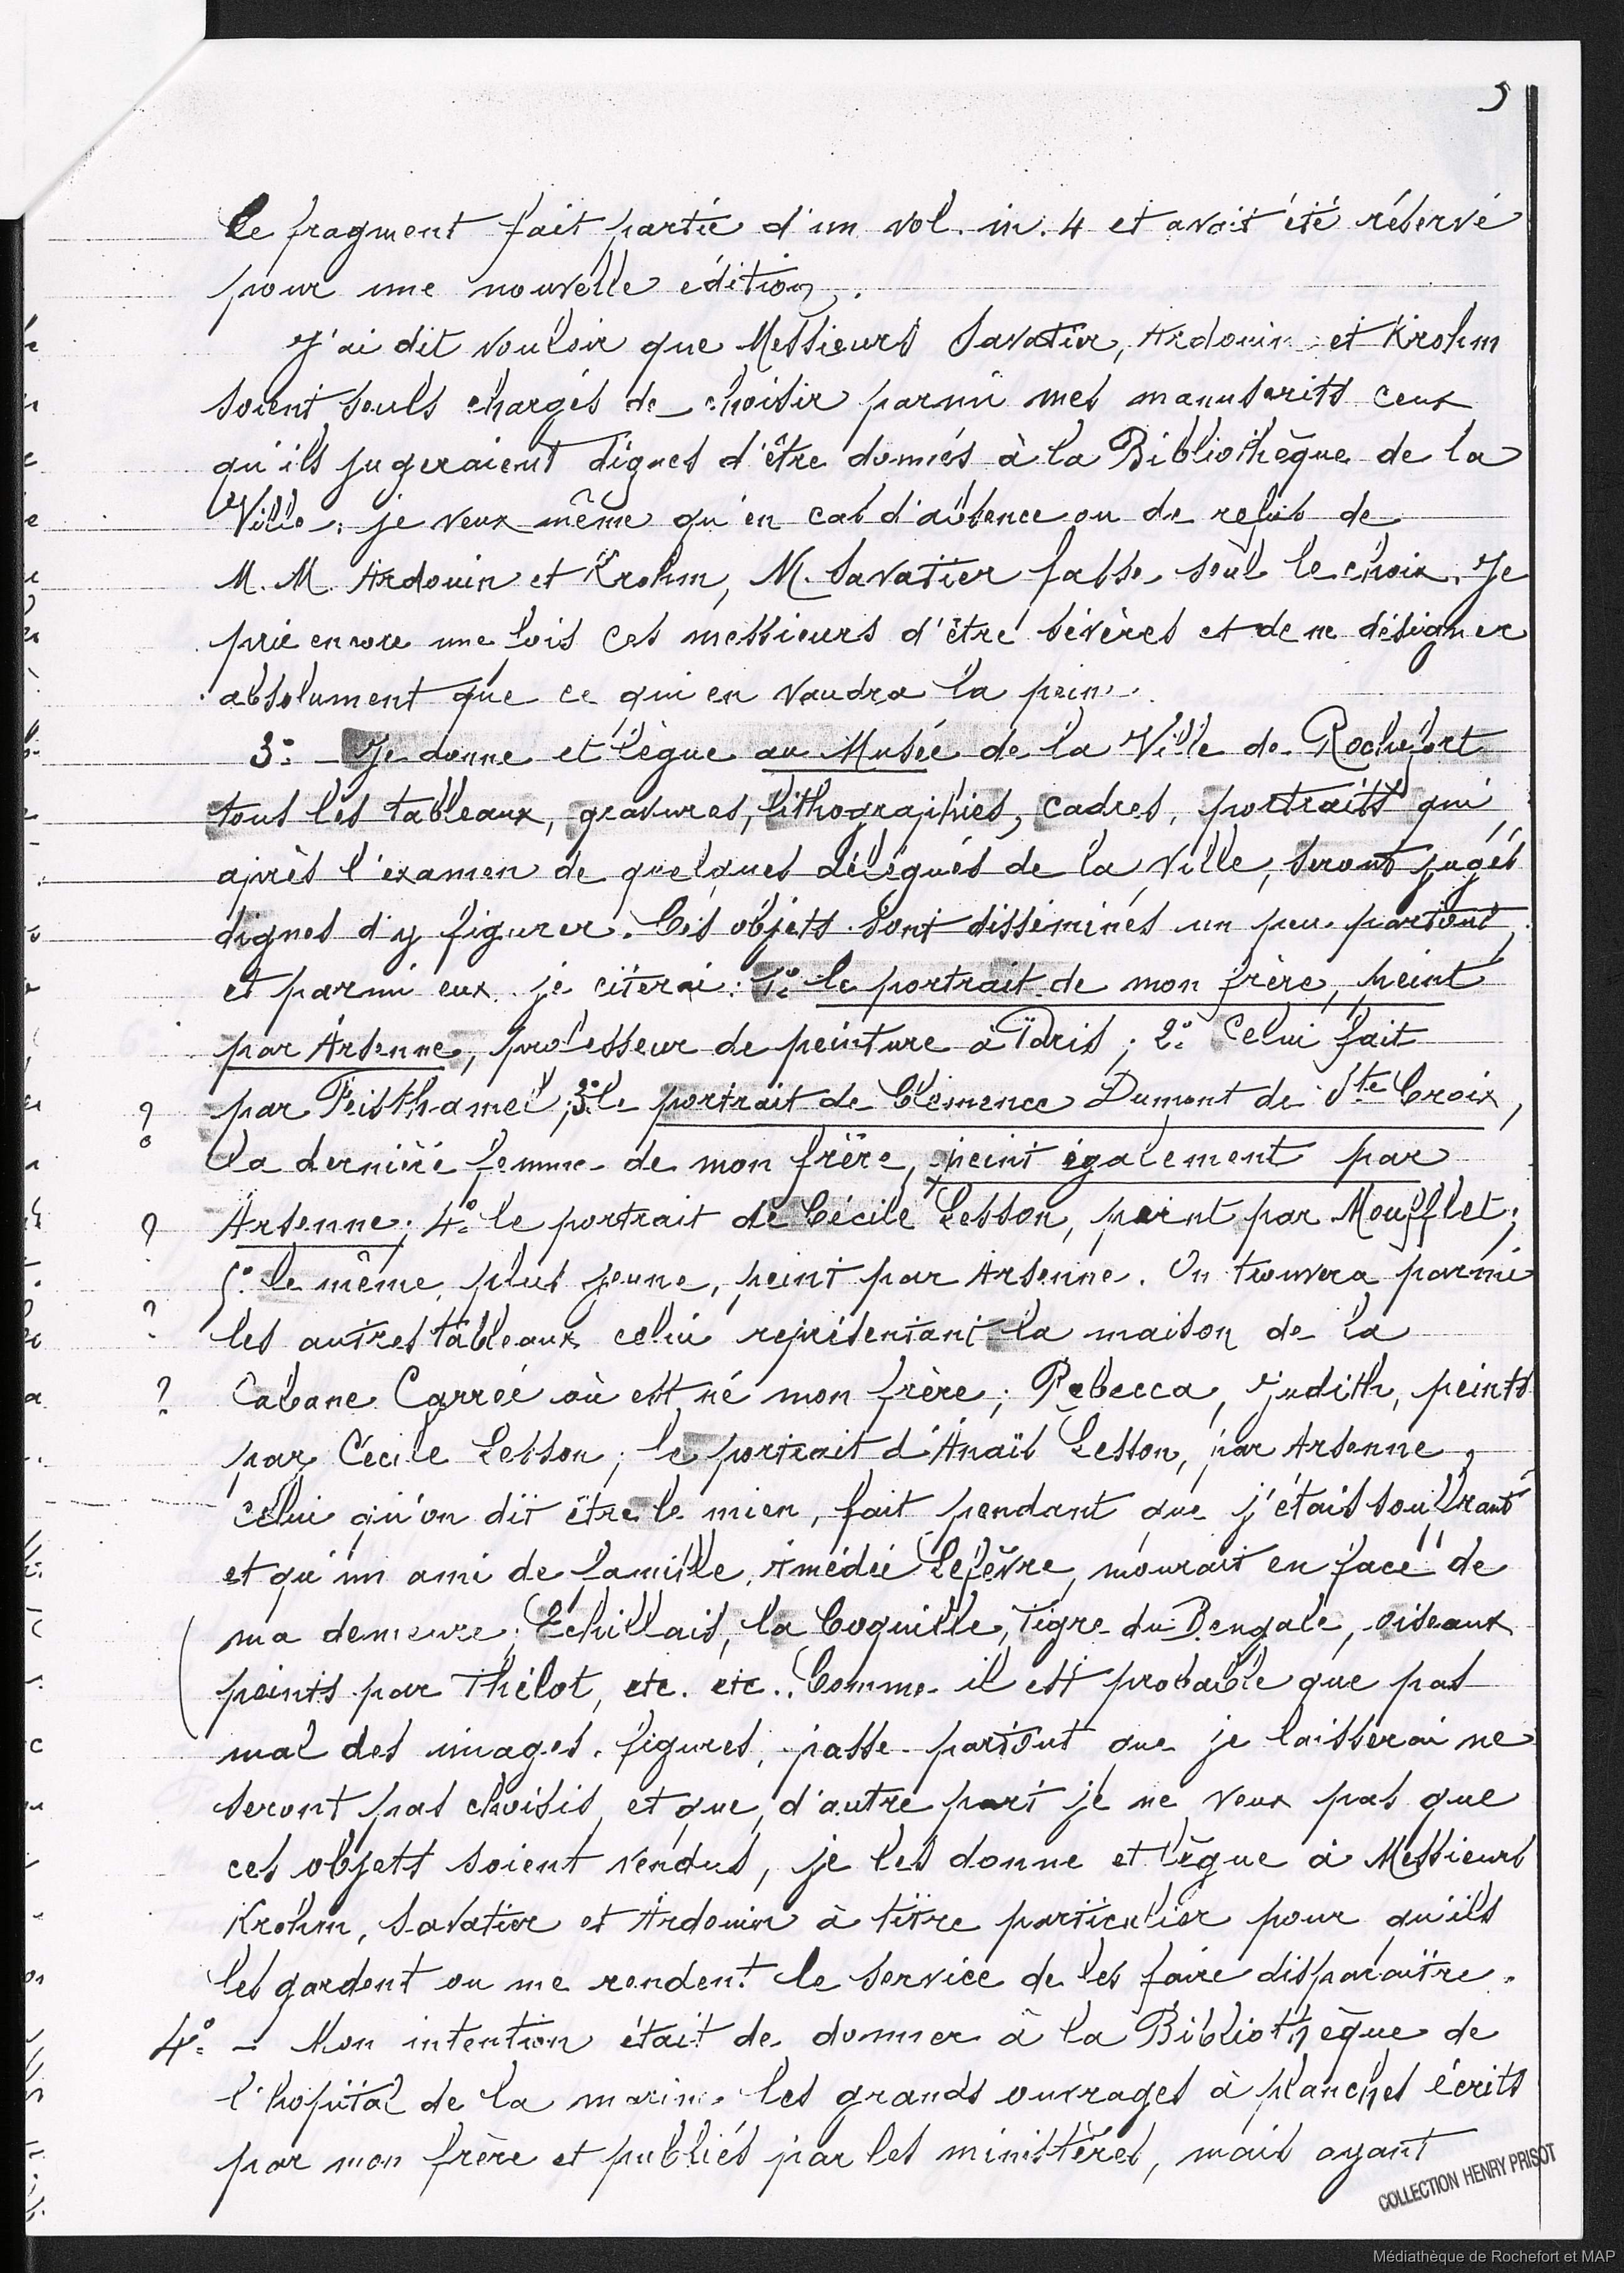 5
Ce fragment fait partie d'un vol. in. 4 et avait été réservé
pour une nouvelle édition.
J'ai dit vouloir que Messieurs Savatier, Ardouin et Krohm
soient seuls chargés de choisir parmi mes manuscrits ceux
qu'ils jugeraient dignes d'être donnés à la Bibliothèque de la
Ville; je veux même qu'en cas d'absence ou de refus de
M. M. Ardouin et Krohm, M. Savatier fasse seul le choix. Je
prie encore une fois ces messieurs d'être sévères et de ne désigner
absolument que ce qui en vaudra la peine.
3º - Je donne et lègue au Musée de la Ville de Rochefort
tous les tableaux, gravures, lithographies, cadres, portraits qui,
après l'examen de quelques délégués de la Ville, seront jugés
dignes d'y figurer. Ces objets sont disséminés un peu partout,
et parmi eux je citerai: 1º le portrait de mon frère, peint
par Arsenne, professeur de peinture à Paris; 2º Celui fait
? par Feisthamel; 3º le portrait de Clémence Dumont de Ste Croix,
la dernière femme de mon frère, peint également par
? Arsenne; 4º le portrait de Cécile Lesson, peint par Moufflet;
5º le même, plus jeune, peint par Arsenne. On trouvera parmi
? les autres tableaux celui représentant la maison de la
? Cabane Carrée où est né mon frère; Rebecca, Judith, peints
par Cécile Lesson; le portrait d'Anaïs Lesson, par Arsenne,
celui qu'on dit être le mien, fait pendant que j'étais souffrant
et qu'un ami de famille, Amédée Lefèvre, mourait en face de
ma demeure; Echillais, la Coquille, Tigre du Bengale, oiseaux
peints par Thélot, etc. etc.. Comme il est probable que pas
mal des images, figures, passe-partout que je laisserai ne
seront pas choisis, et que, d'autre part je ne veux pas que
ces objets soient vendus, je les donne et lègue à Messieurs
Krohm, Savatier et Ardouin à titre particulier pour qu'ils
les gardent ou me rendent le service de les faire disparaître.
4º - Mon intention était de donner à la Bibliothèque de
l'hopital de la marine les grands ouvrages à planches écrits
par mon frère et publiés par les ministères, mais ayant
COLLECTION HENRY PRISOT
Médiathèque de Rochefort et MAP